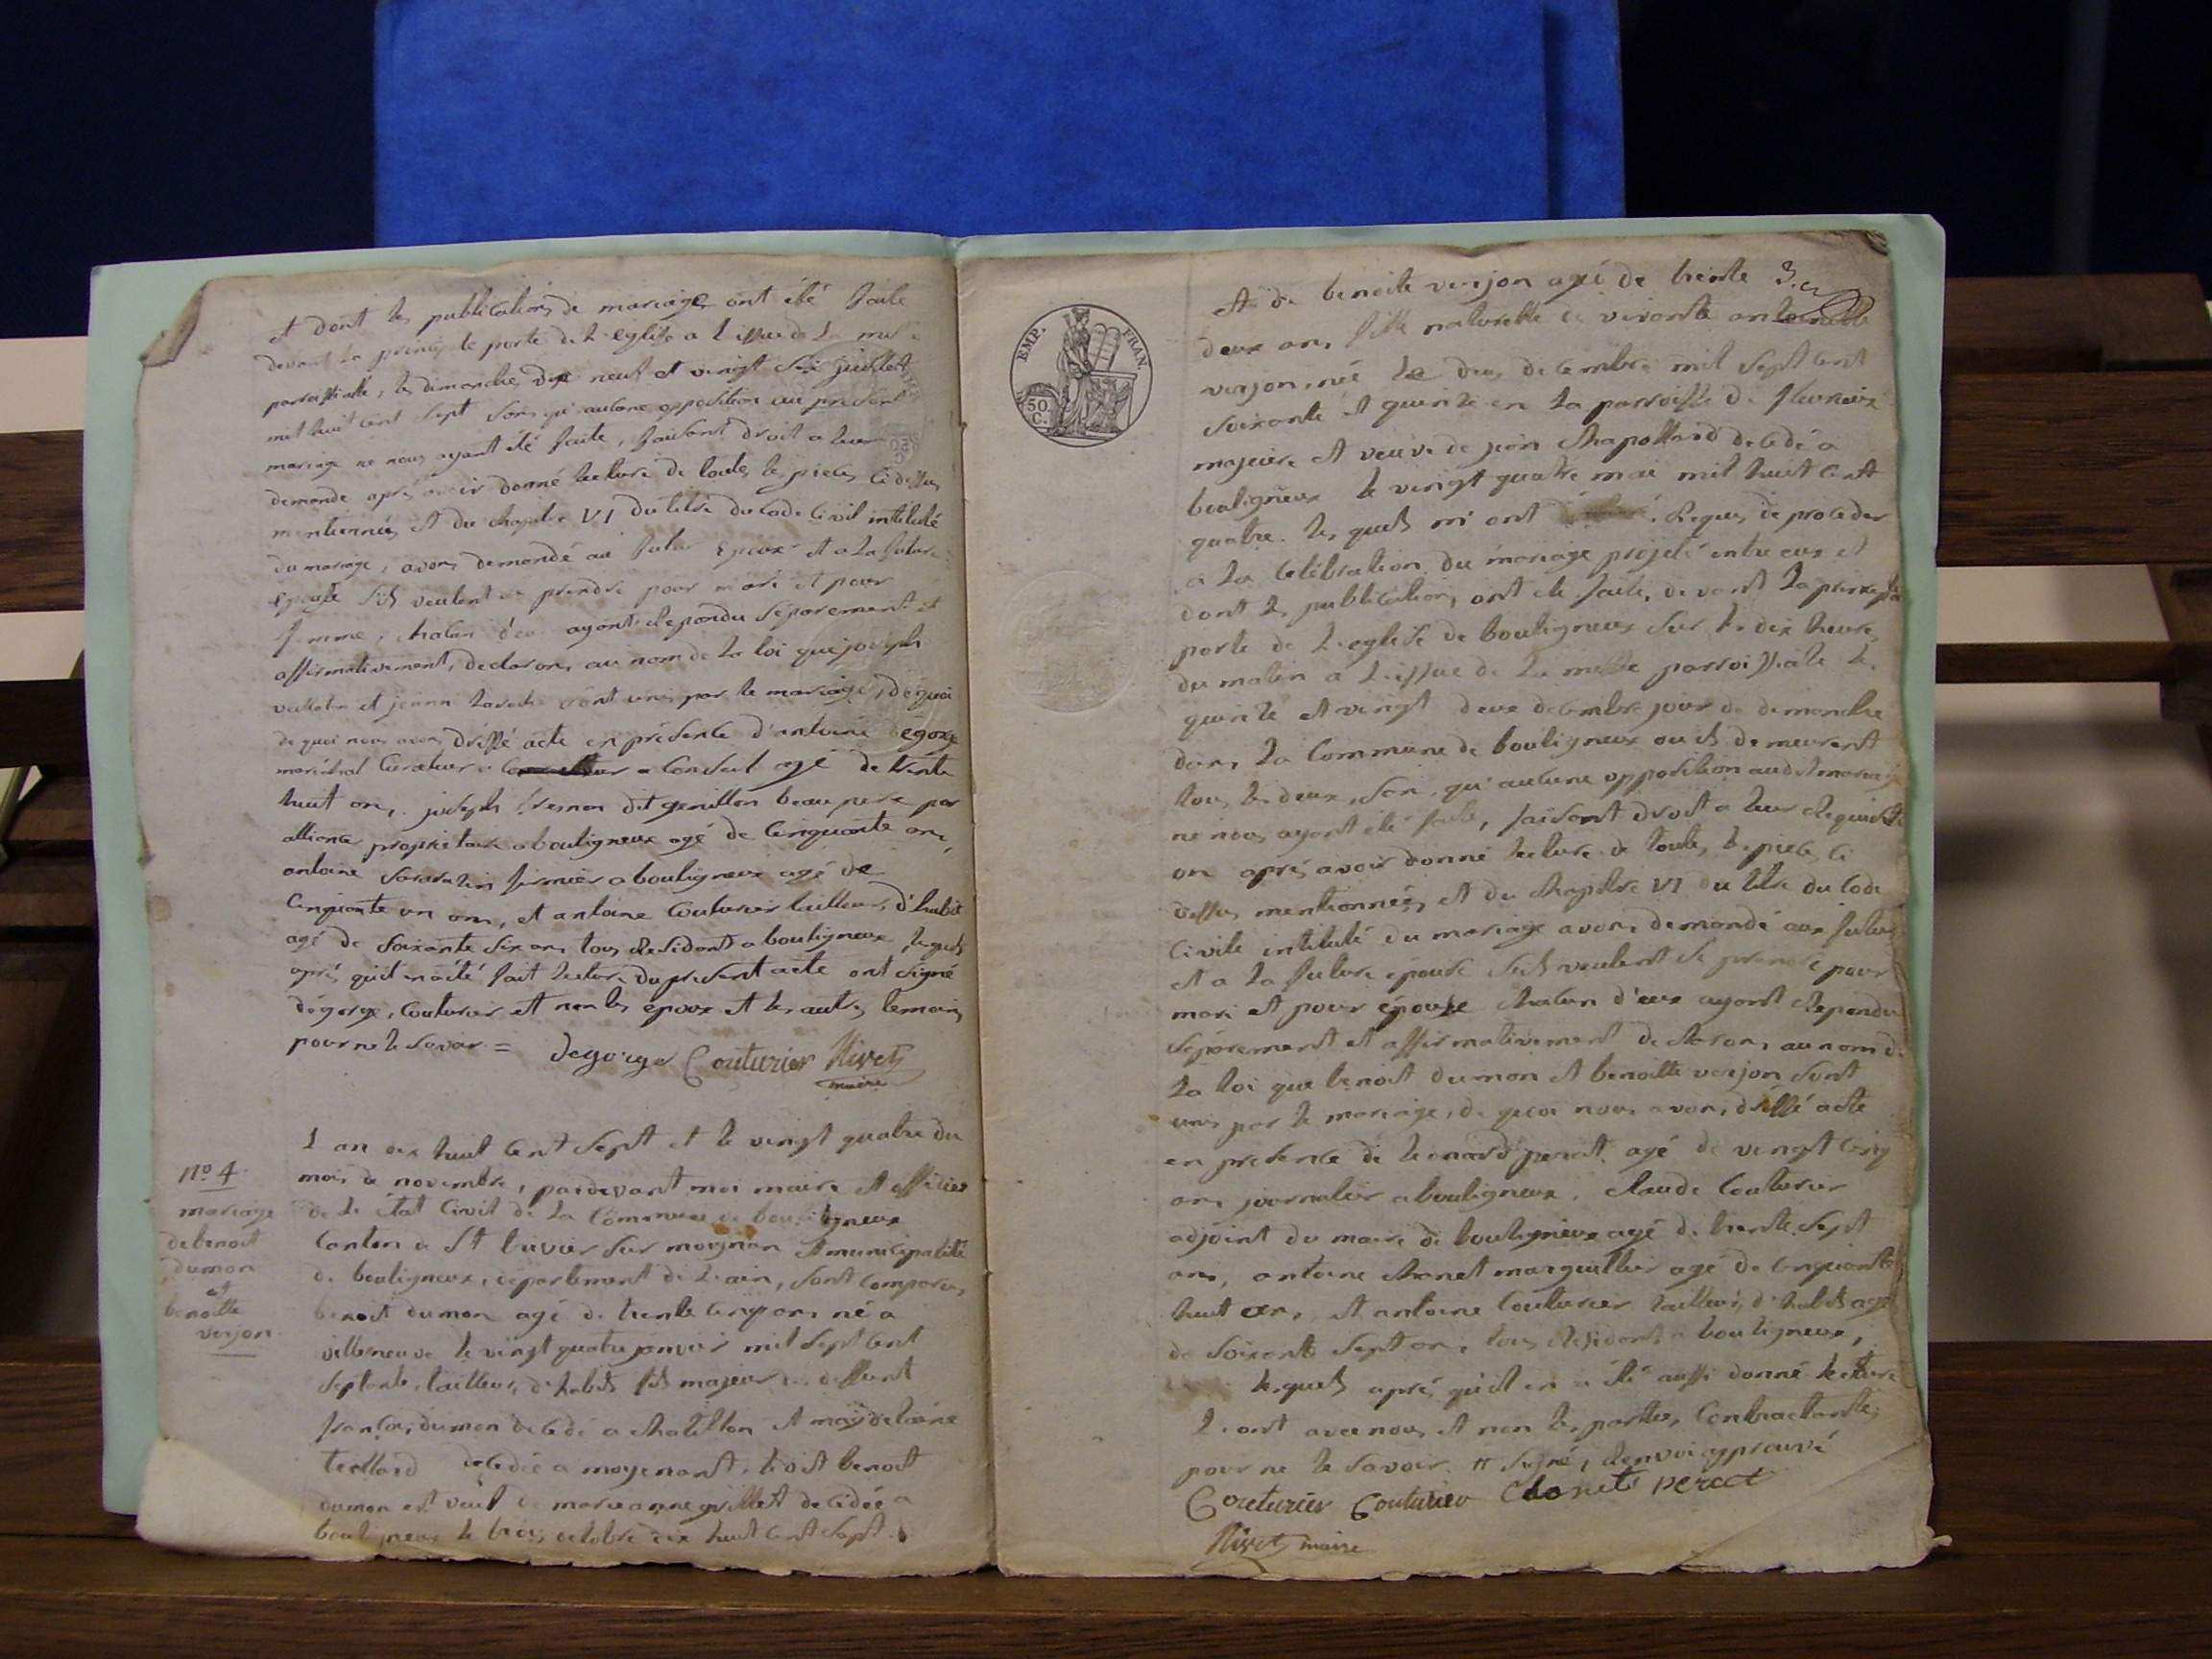 et dont les publications de mariage ont été faite
devant la principale porte de l'eglise a l'issue de la messe
parroissialle, les dimanches dix neuf et vingt six juillet
mil huit cent sept sans qu'aucune opposition au present
mariage ne nous ayant été faite, faisant droit a leur
demande apres avoir donné lecture de toutes les pieces ci dessus
mentionnées et du chapitre VI du titre du code civil intitulé
du mariage, avons demandé au futur epoux et a la future
epouse s'ils veulent se prendre pour mari et pour
femme, chacun d'eux ayant repondu séparement et
affirmativement, declarons au nom de la loi que joseph
et jeann sont unis par le mariage, de quoi
de quoi nous avons dressé acte en présence d'antoine dégorge
maréchal a agé de trente
huit ans, joseph dit genillon beau pere par
alliance propriétaire a bouligneux agé de cinquante ans,
antoine fermier a bouligneux agé de
cinquante un ans, et antoine couturier tailleur d'habit
agé de soixante six ans tous residant a bouligneux lequels
aprés qu'il en a été fait lecture du present acte ont signé
dégorge, couturier et non les epoux et les autres temoins
pour ne le savoir =
degorge Couturier Nivet
maire
N° 4
mariage
de benoit
dumon
et
benoitte
verjon
L'an dix huit cent sept et le vingt quatre du
mois de novembre, pardevant moi maire et officier
de l'état civil de la commune de bouligneux
canton de St trivier sur moignan et municipalité
de bouligneux, département de l'ain, sont comparus
benoit dumon agé de trente cinq ans né a
villeneuve le vingt quatre janvier mil sept cent
septante, tailleur d'habits fils majeur de deffunt
françois dumon décédé a chatillon et magdelaine
décédée a , le dit benoit
dumon est veuf de marie anne grillet décédée a
bouligneux le trois octobre dix huit cent sept
3.e
EMP. FRAN.
50 C.
et de benoite verjon agé de trente
deux ans, fille naturelle et vivante antoinette
verjon, née le deux décembre mil sept cent
soixante et quinze en la parroisse de fleurieux
majeure et veuve de jean chapolard décédé a
bouligneux le vingt quatre mai mil huit cent
quatre. les quels m'ont requis de proceder
a la celebration du mariage projeté entre eux et
dont les publications ont été faite, devant la principale
porte de l'eglise de bouligneux sur les dix heures
du matin a l'issue de la messe parroissiale le
quinze et vingt deux decembre jour de dimanche
dans la commune de bouligneux ou ils demeurent
tous les deux, sans qu'aucune opposition audit mariage
ne nous ayant été faite, faisant droit a leur requisiti
on aprés avoir donné lecture de toutes les pieces ci
dessus mentionnées et du chapitre VI du titre du code
civile intitulé du mariage avons demandé aux futur
et a la future épouse s'ils veulent se prendre pour
mari et pour épouse chacun d'eux ayant repondu
séparement et affirmativement declarons au nom de
la loi que benoit dumon et benoitte verjon sont
unis par le mariage, de quoi nous avons dréssé acte
en présence de leonard perret agé de vingt cinq
ans journalier a bouligneux, claude couturier
adjoint du maire de bouligneux agé de trente sept
ans, antoine chanet marguillier agé de cinquante
huit ans, et antoine couturier tailleur d'habits agé
de soixante sept ans tous residant a bouligneux,
lesquels aprés qu'il en a été aussi donné lecture
l'ont avec nous et non les parties contractantes
pour ne le savoir # signé, renvoi approuvé
Couturier Couturier Chanet Peret
Nivet maire